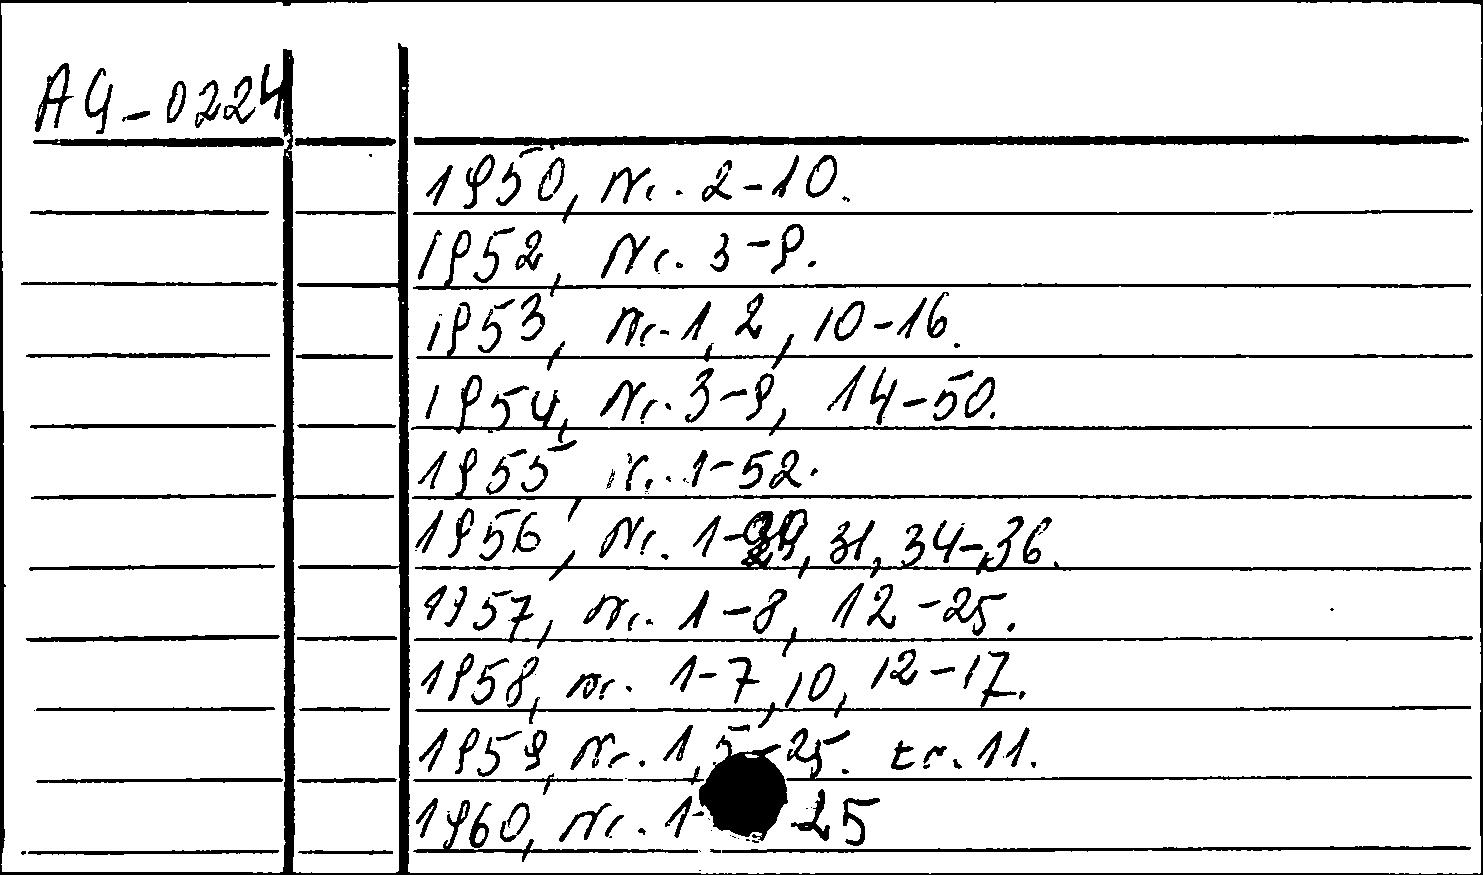 AG-0224
1950, Nr. 2-10.
1952, Nr. 3-9.
1953, Nr. 1, 2, 10-16.
1954, Nr. 3-9, 14-50.
1955, Nr. 1-52.
1956, Nr. 31, 34-36.
1957, Nr. 1-8, 12-25.
1958, nr. 1-7, 10, 12-17.
1959, Nr. 1, 5-25. tr. 11.
1960, Nr. 1- 25